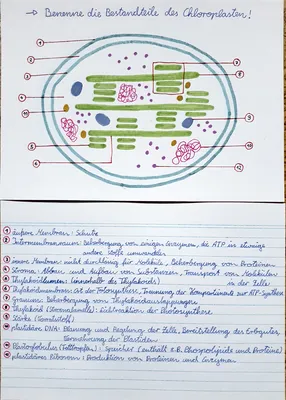 → Benenne die Bestandteile des Chloroplasten!
1
2
3
4
5
6
7
8
9
10
11
12
① äußere Membran: Schutz
② Intermembranraum: Beherbergung von einigen Enzymen, die ATP in etwaige
andere Stoffe umwandeln
③ innere Membran: nicht durchlässig für Moleküle, Beherbergung von Proteinen
④ Stroma: Abbau und Aufbau von Substanzen, Transport von Molekülen
in der Zelle
⑤ Thylakoidlumen: innerhalb des Thylakoids
⑥ Thylakoidmembran: Ort der Fotosynthese, Trennung der Kompartimente zur ATP-Synthese
⑦ Granum: Beherbergung von Thylakoidausstülpungen
⑧ Thylakoid (Stromalamelle): Lichtreaktion der Photosynthese
⑨ Stärke (Kornstoff)
⑩ plastidäre DNA: Planung und Regelung der Zelle, Bereitstellung des Erbgutes,
Vermehrung der Plastiden
⑪ Plastoglobulus (Fetttropfen): Speicher (enthält z.B. Lipide und Proteine)
⑫ plastidäre Ribosomen: Produktion von Proteinen und Enzymen